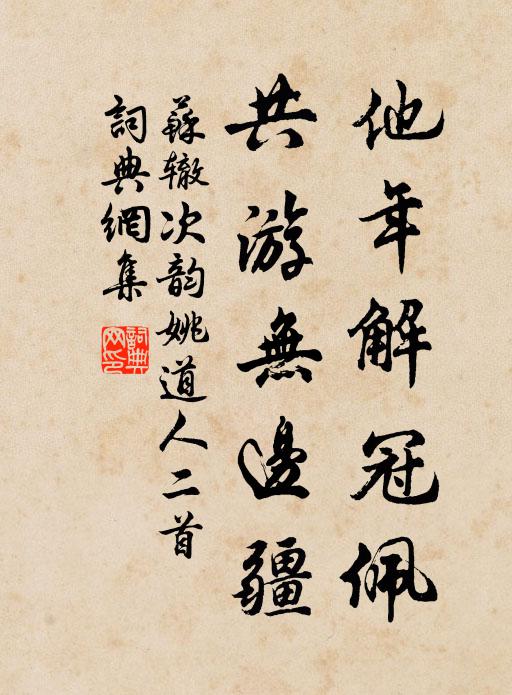 他年解冠佩
共游無邊疆
蘇辙次韵姚道人二首
詞典網集
詞典网印